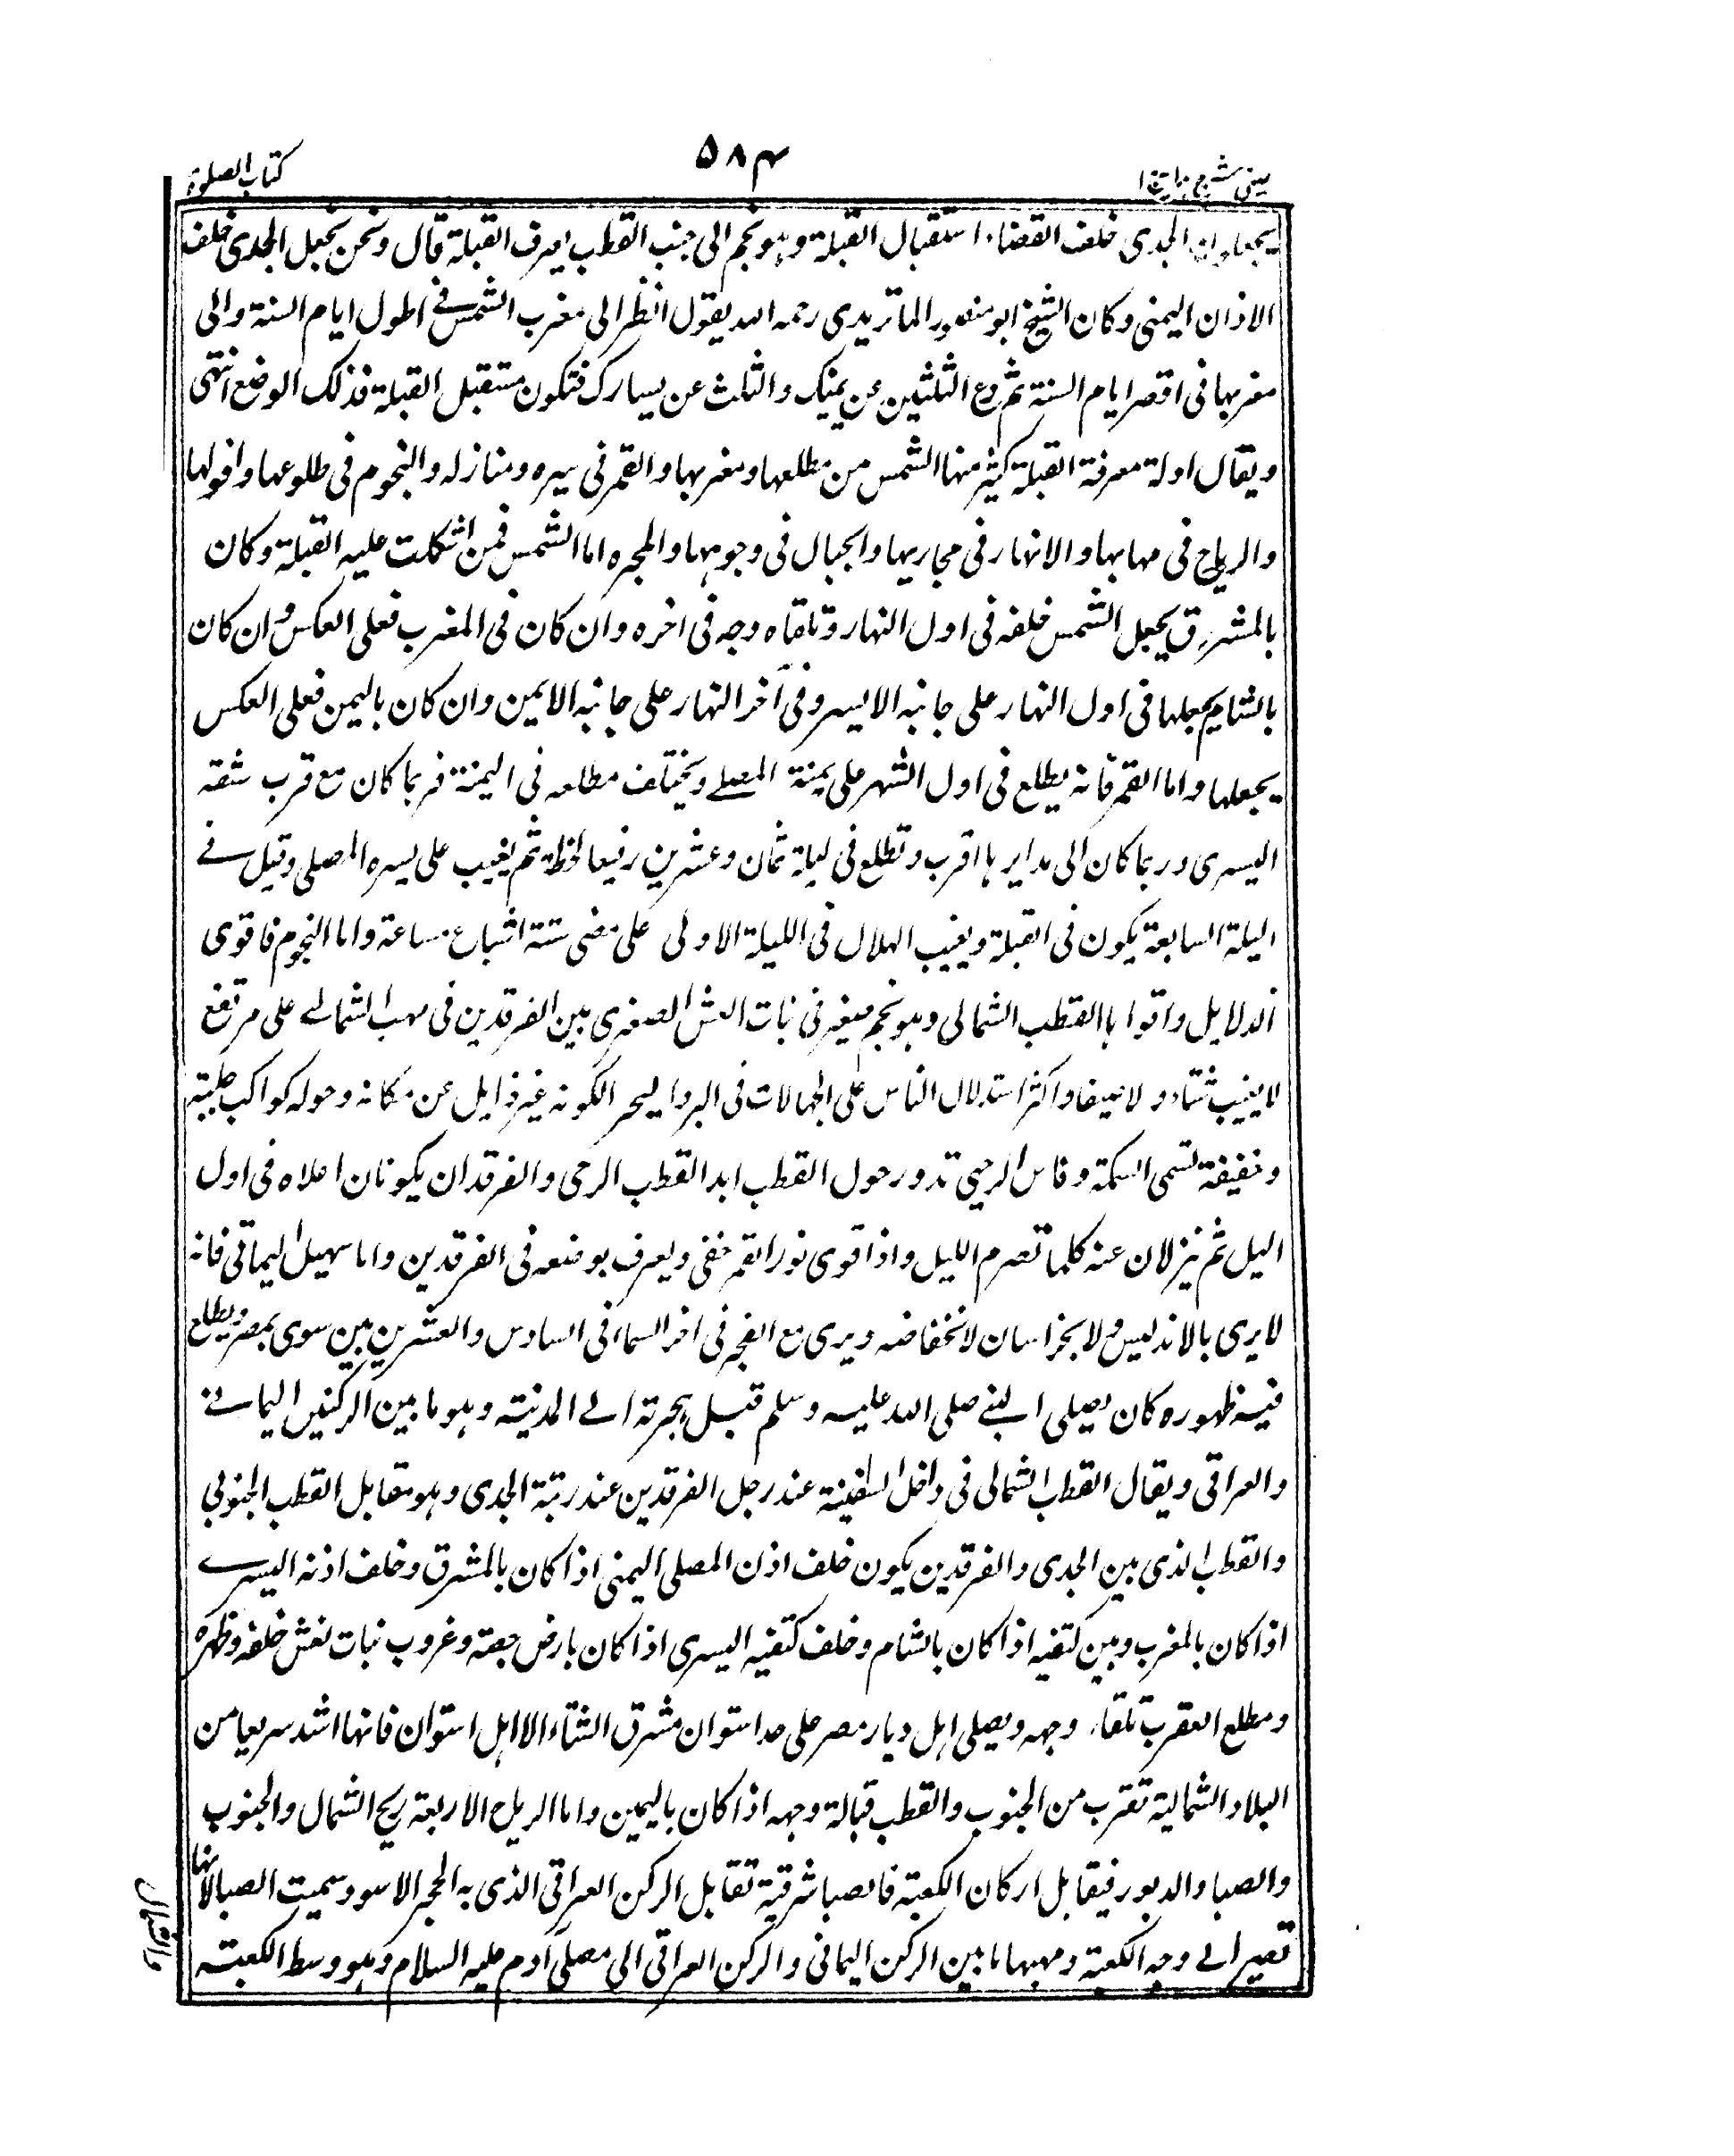 عينى شرح هداية ج ١
٥٨٤
كتاب الصلوة
يجعلون الجدى خلف القضاء استقبال القبلة وهو نجم الى جنب القطب يعرف القبلة قال ونحن نجعل الجدى خلف
الاذان اليمنى وكان الشيخ ابو منصور الماتريدى رحمه الله يقول انظر الى مغرب الشمس فى اطول ايام السنة والى
مغربها فى اقصر ايام السنة ثم دع الثلثين عن يمينك والثلث عن يسارك فتكون مستقبل القبلة فذلك الوضع انتهى
ويقال ادلة معرفة القبلة كثير منها الشمس من مطلعها ومغربها والقمر فى سيره ومنازله والنجوم فى طلوعها وافولها
والرياح فى مهابها والانهار فى مجاريها والجبال فى وجوهها والمجره اما الشمس فمن اشكلت عليه القبلة وكان
بالمشرق يجعل الشمس خلفه فى اول النهار وتلقاه وجه فى اخره وان كان فى المغرب فعلى العكس وان كان
بالشام يجعلها فى اول النهار على جانبه الايسر وفى آخر النهار على جانبه الايمن وان كان باليمن فعلى العكس
يجعلها واما القمر فانه يطلع فى اول الشهر على يمنة المصلے ويختلف مطالعه فى اليمنة فربما كان مع قرب شقه
اليسرى وربما كان الى مدايرها اقرب وتطلع فى ليلة ثمان وعشرين رفيعا لحظة ثم يغيب على يسره المصلى وقيل فے
اليلة السابعة يكون فى القبلة ويغيب الهلال فى الليلة الاولى على مضى ستة اشباع ساعة واما النجوم فاقوى
الدلايل واقواها القطب الشمالى وهو نجم صغير فى نبات النعش الصغرى بين الفرقدين فى مهب الشمالے على مرتفع
لايغيب شتاء ولا صيفا واكثر استدلال الناس على الجهالات فى البر والبحر الكونه غير زايل عن مكانه وحوله كواكب جلية
وخفيفة تسمى السمكة وفاس الرحى تدور حول القطب ابد القطب الرحى والفرقدان يكونان اعلاه فى اول
اليل ثم ينزلان عنه كلما تصرم الليل واذا قوى نور القمر خفى ويعرف بوضعه فى الفرقدين واما سهيل اليمانى فانه
لايرى بالاندليس ولا بخراسان لانخفاضه ويرى مع الفجر فى اخر السما فى السادس والعشرين بين سوى بمصر ويطلع
فيه ظهوره كان يصلى النبے صلى الله عليه وسلم قبل هجرته الے المدينة وهو ما بين الركنين اليمانے
والعراقى ويقال القطب الشمالى فى داخل السفينة عند رجل الفرقدين عند رتبة الجدى وهو مقابل القطب الجنوبى
والقطب الذى بين الجدى والفرقدين يكون خلف اذن المصلى اليمنى اذا كان بالمشرق وخلف اذنه اليسرے
اذا كان بالمغرب وبين كتفيه اذا كان بالشام وخلف كتفيه اليسرى اذا كان بارض وغروب نبات نعش خلفه وظهره
ومطلع العقرب تلقاء وجهه ويصلى اهل ديار مصر على حد استوان مشرق الشتاء الا اهل استوان فانها اشد سريعا من
البلاد الشمالية تقرب من الجنوب والقطب قبالة وجهه اذا كان باليمين واما الرياح الاربعة ريح الشمال والجنوب
والصبا والدبور فيقابل اركان الكعبة فالصبا شرقية تقابل الركن العراقى الذى به الحجر الاسود وسميت الصبا لانها
تصير الے وجه الكعبة ومهبها ما بين الركن اليمانى والركن العراقى الى مصلى آدم عليه السلام وهو وسط الكعبة
والشمال